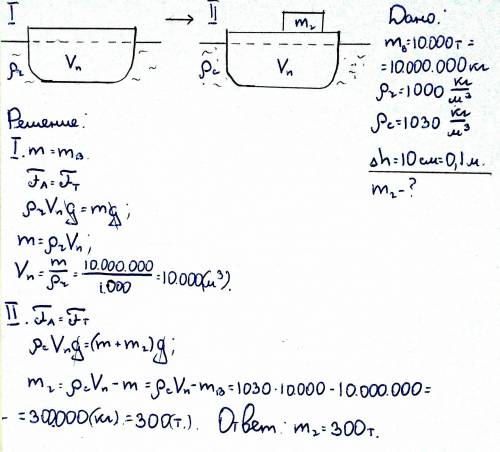 I → II
m₂
Vп
Vп
ρ₂
ρс
Дано:
mв=10.000т=
=10.000.000кг
ρ₂=1000 кг/м³
ρс=1030 кг/м³
Δh=10см=0,1м.
m₂-?
Решение:
I. m=mв.
FА=FТ
ρ₂Vпg=mg;
m=ρ₂Vп;
Vп=m/ρ₂=10.000.000/1.000=10.000(м³).
II. FА=FТ
ρсVпg=(m+m₂)g;
m₂=ρсVп-m=ρсVп-mв=1030·10.000-10.000.000=
=300.000(кг).=300(т.). Ответ: m₂=300т.